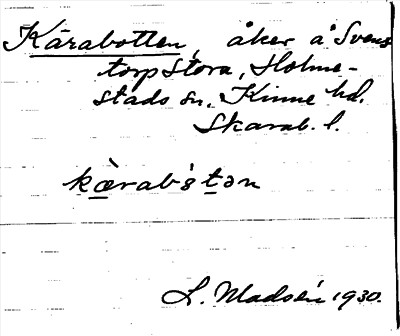 Kårabotten, åker å Svens
torp Stora, Holme-
stads sn. Kinne hd.
Skarab. l.
kæ̀rabòtən
L. Madsén 1930.